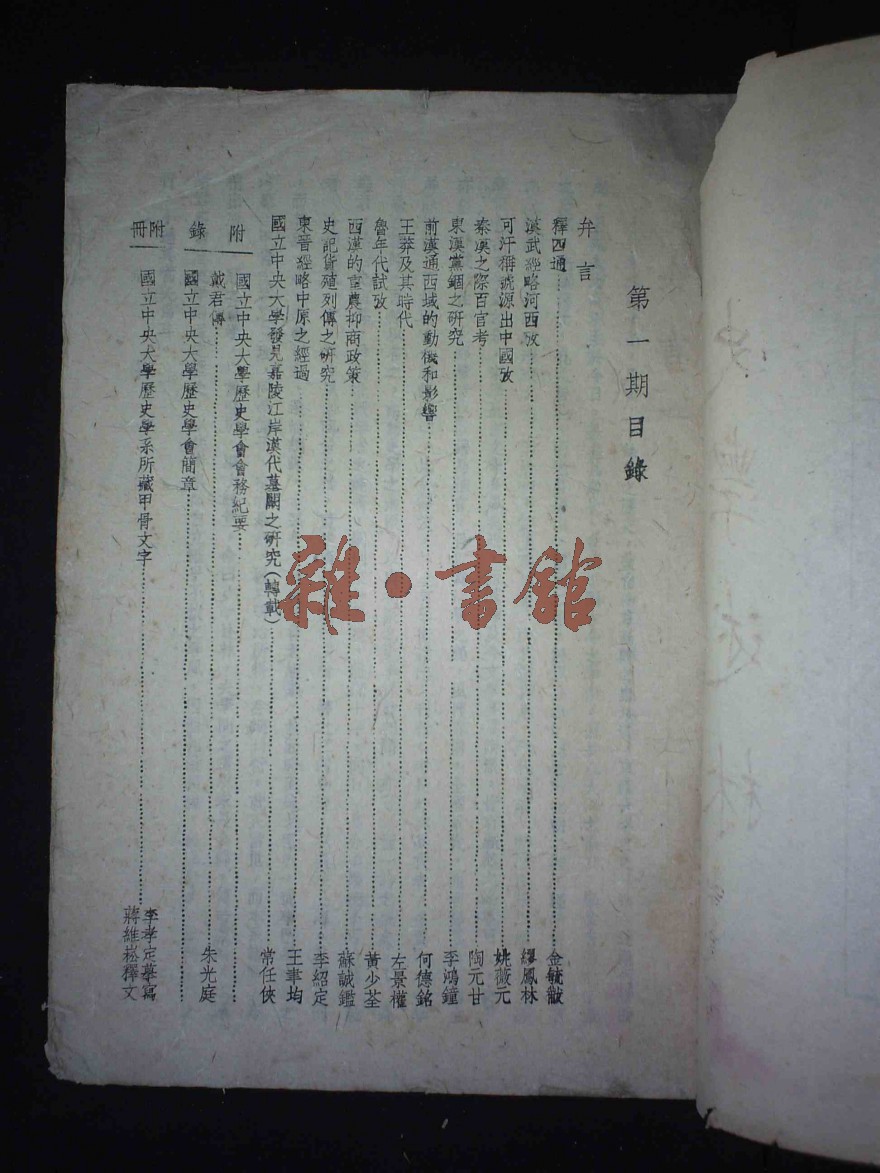 第一期目錄
弁言
釋四通 金毓黻
漢武經略河西攷 繆鳳林
可汗稱號源出中國攷 姚薇元
秦漢之際百官考 陶元甘
東漢黨錮之研究 李鴻鐘
前漢通西域的動機和影響 何德銘
王莽及其時代 左景權
魯年代試攷 黃少荃
西漢的重農抑商政策 蘇誠鑑
史記貨殖列傳之研究 李紹定
東晉經略中原之經過 王聿均
國立中央大學發見嘉陵江岸漢代墓闕之研究(轉載) 常任俠
附錄
國立中央大學歷史學會會務紀要
戴君傳 朱光庭
國立中央大學歷史學會簡章
附冊
國立中央大學歷史學系所藏甲骨文字 李孝定摹寫
蔣維崧釋文
雜·書館